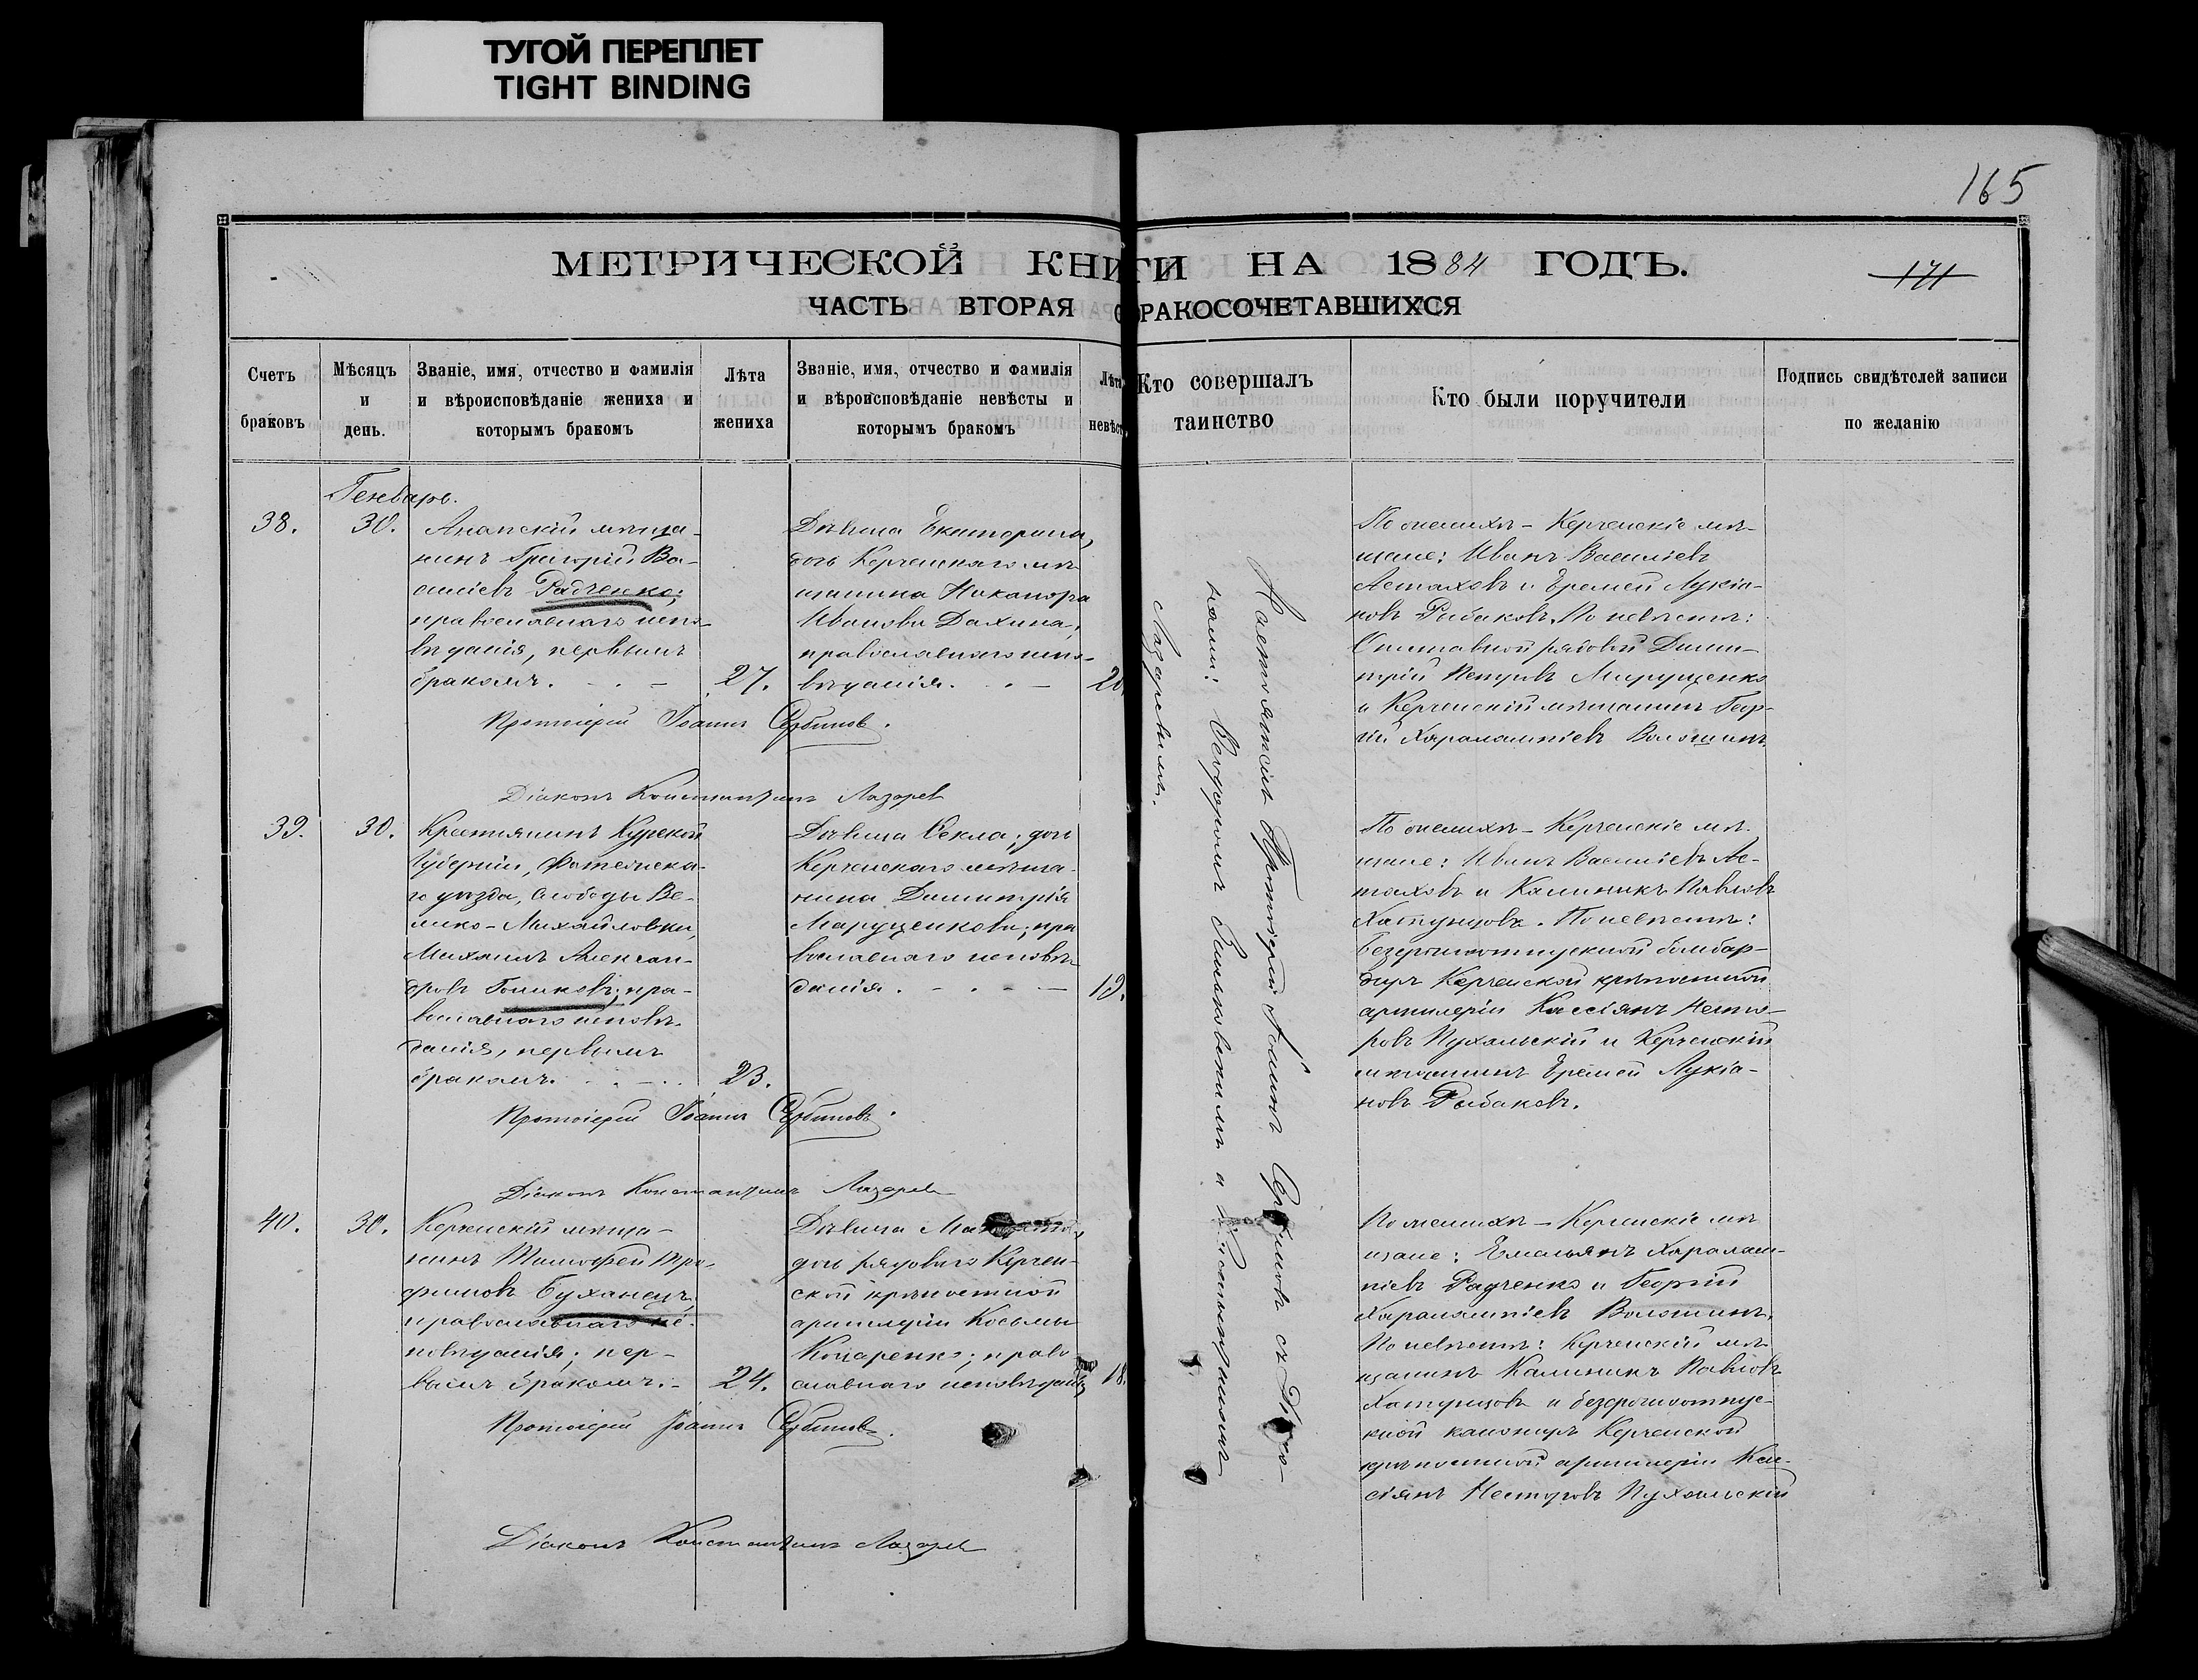 ТУГОЙ ПЕРЕПЛЕТ
TIGHT BINDING
165
МЕТРИЧЕСКОЙ КНИГИ НА 1884 ГОДЪ.
171
ЧАСТЬ ВТОРАЯ О БРАКОСОЧЕТАВШИХСЯ
Счетъ
браковъ
Мѣсяцъ
и
день.
Званіе, имя, отчество и фамилія
и вѣроисповѣданіе жениха и
которымъ бракомъ
Лѣта
жениха
Званіе, имя, отчество и фамилія
и вѣроисповѣданіе невѣсты и
которымъ бракомъ
Лѣта
невѣст
Кто совершалъ
таинство
Кто были поручители
Подпись свидѣтелей записи
по желанію
Генварь.
38.
30.
Анапскій мѣща-
нинъ Григорій Ва-
силіевъ Радченко;
православнаго испо-
вѣданія, первымъ
бракомъ.
27.
Дѣвица Екатерина,
дочь Керченскаго мѣ-
щанина Никанора
Иванова Дахина;
православнаго испо-
вѣданія.
20
По женихѣ - Керченскіе мѣ-
щане: Иванъ Василіевъ
Астаховъ и Еремей Лукіа-
новъ Рыбаковъ. По невѣстѣ:
Отставной рядовый Дими-
трій Петровъ Марущенко
и Керченскій мѣщанинъ Геор-
гій Харалампіевъ Волошинъ.
Протоіерей Іоаннъ Сербиновъ.
Діаконъ Константинъ Лазарев
39.
30.
Крестьянинъ Курской
Губерніи, Фатежска-
го уѣзда, Слободы Ве-
лико-Михайловки,
Михаилъ Алексан-
дровъ Голиковъ; пра-
вославнаго исповѣ-
данія, первымъ
бракомъ.
23.
Дѣвица Ѳекла; дочь
Керченскаго мѣща-
нина Димитрія
Марущенкова; пра
вославнаго исповѣ-
данія.
19.
По женихѣ - Керченскіе мѣ-
щане: Иванъ Василіевъ Ас-
таховъ и Калиникъ Павловъ
Хатунцовъ. По невѣстѣ:
Безсрочноотпускной бомбар-
диръ Керченской крѣпостной
артилеріи Кассіянъ Несто-
ровъ Пухальскій и Керченскій
мѣщанинъ Еремей Лукіа-
новъ Рыбаковъ.
Протоіерей Іоаннъ Сербиновъ.
Діаконъ Константинъ Лазарев
40.
30.
Керченскій мѣща-
нинъ Тимофей Тро-
фимовъ Буханецъ,
православнаго ис-
повѣданія; пер-
вымъ бракомъ.
24.
Дѣвица
дочь рядоваго Керчен-
ской крѣпостной
артилеріи Косьмы
православнаго исповѣданія
18.
По женихѣ - Керченскіе мѣ
щане: Емельянъ Харалам-
піевъ Радченко и Георгій
Харалампіевъ Волошинъ.
По невѣстѣ: Керченскій мѣ-
щанинъ Калиникъ Павловъ
Хатунцовъ и безсрочноотпус-
кной канониръ Керченской
крѣпостной артилеріи Кас-
сіянъ Несторовъ Пухальскій
Протоіерей Іоаннъ Сербинов.
Діаконъ Константинъ Лазарев
Настоятель Протоіерей Іоаннъ Сербиновъ съ Діако-
нами: Ѳеодоромъ и Константиномъ
Лазаревымъ.